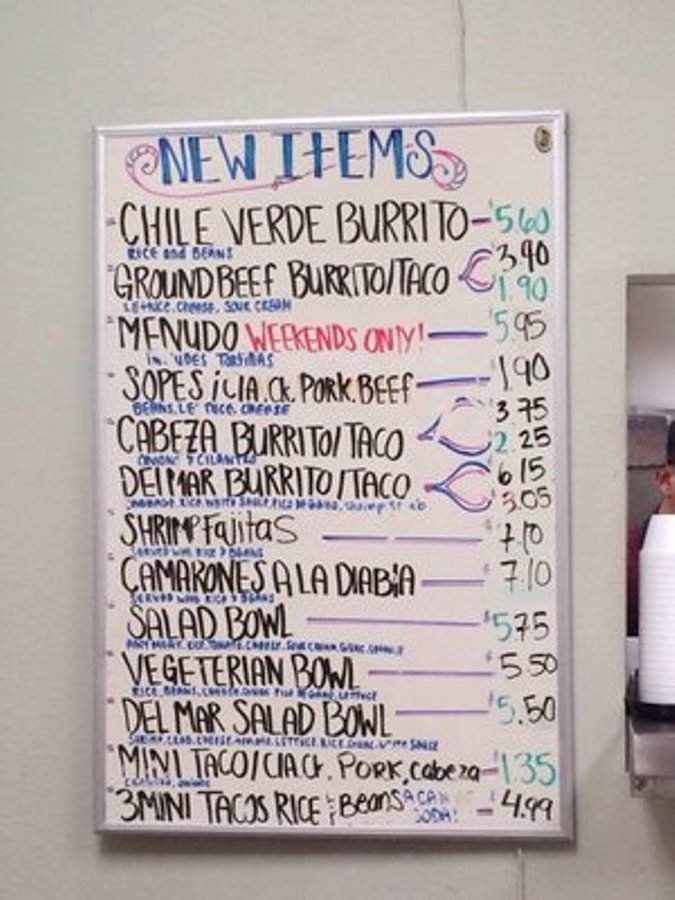 NEW ITEMS
CHILE VERDE BURRITO - $5.60
RICE and BEANS
GROUND BEEF BURRITO/TACO 3.90
1.90
LETTUCE, CHEESE, SOUR CREAM
MENUDO WEEKENDS ONLY! 5.95
TORTILLAS
SOPES PORK, BEEF 1.90
BEANS, CHEESE
CABEZA BURRITO/TACO 3.75
2.25
ONION & CILANTRO
DEL MAR BURRITO/TACO 6.15
3.05
RICE, WHITE SAUCE
SHRIMP FAJITAS 7.10
SERVED WITH RICE & BEANS
CAMARONES A LA DIABLA 7.10
SERVED WITH RICE & BEANS
SALAD BOWL $5.75
VEGETERIAN BOWL $5.50
RICE, BEANS, CHEESE, LETTUCE
DEL MAR SALAD BOWL $5.50
CHEESE, LETTUCE, RICE, WHITE SAUCE
MINI TACO/ PORK, Cabeza - 1.35
3 MINI TACOS RICE Beans A CAN OF - 4.99
SODA!